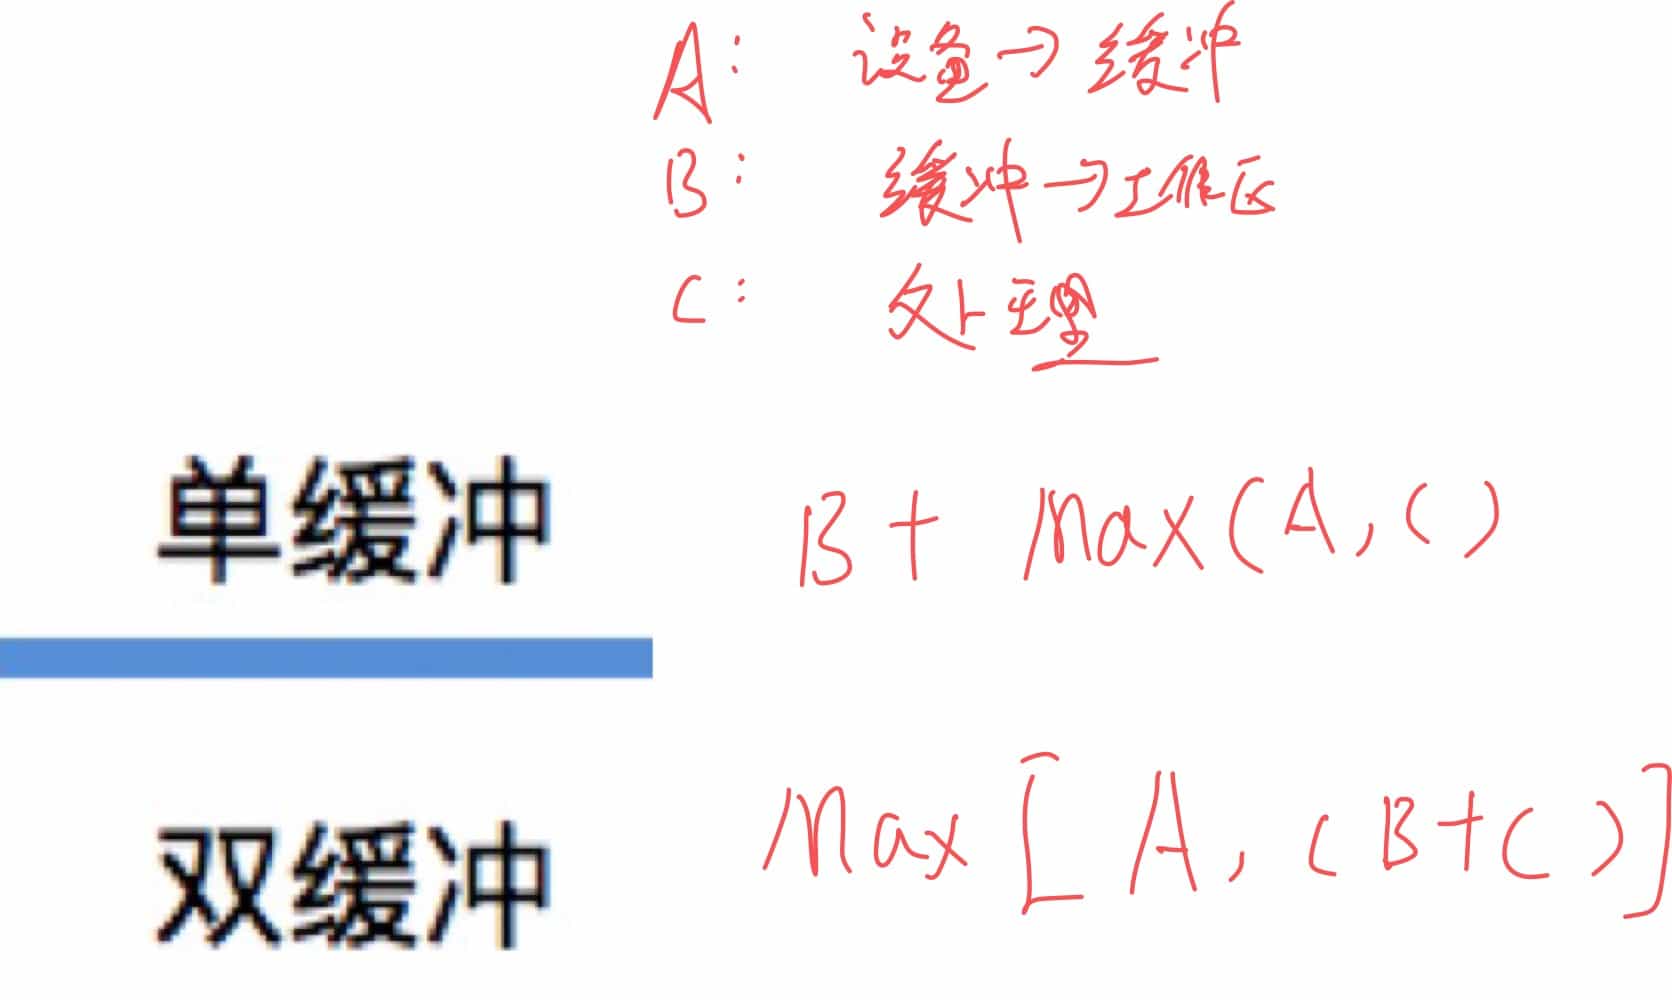 A: 设备→缓冲
B: 缓冲→工作区
C: 处理
单缓冲 B+Max(A,C)
双缓冲 Max[A,(B+C)]